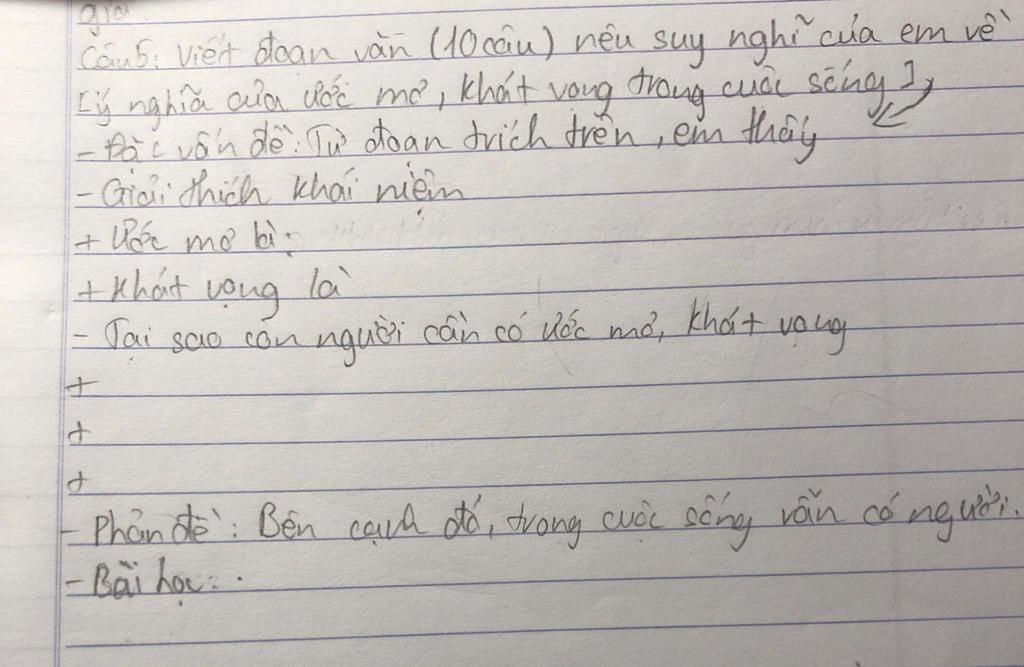 giả
Câu 5: Viết đoạn văn (10 câu) nêu suy nghĩ của em về
[ý nghĩa của ước mơ, khát vọng trong cuộc sống],
- Đặt vấn đề: Từ đoạn trích trên, em thấy
- Giải thích khái niệm
+ Ước mơ là:
+ Khát vọng là
- Tại sao con người cần có ước mơ, khát vọng
+
+
+
- Phản đề: Bên cạnh đó, trong cuộc sống vẫn có người.
- Bài học: